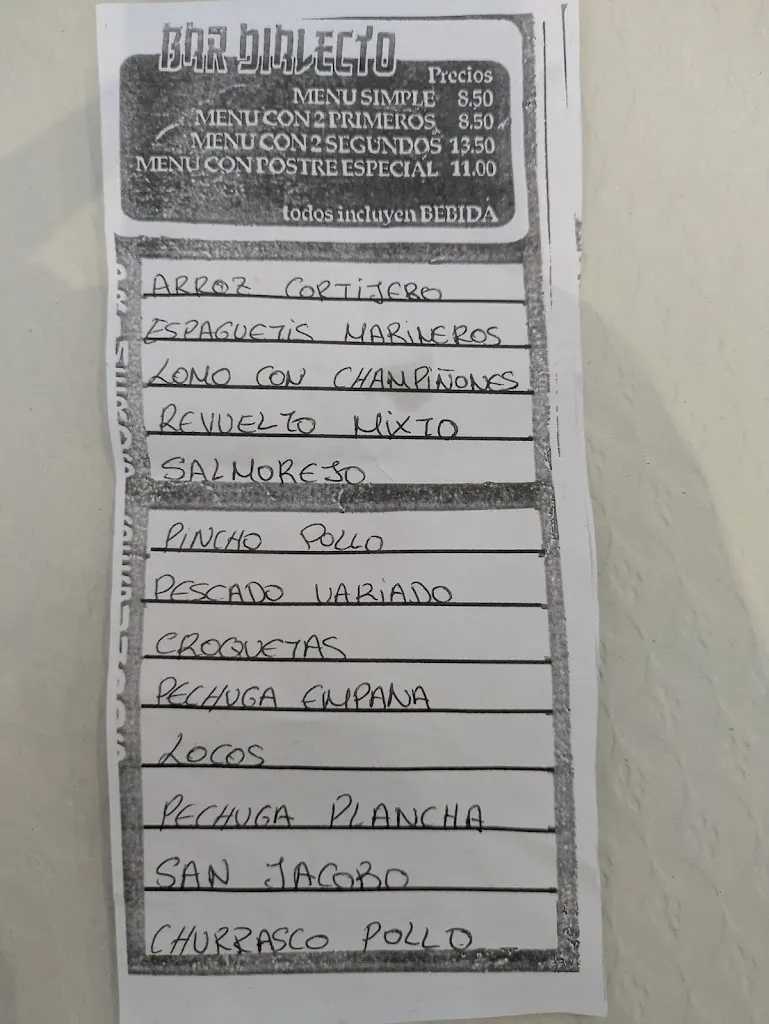 BAR DIALECTO
Precios
MENU SIMPLE 8.50
MENU CON 2 PRIMEROS 8.50
MENU CON 2 SEGUNDOS 13.50
MENU CON POSTRE ESPECIAL 11.00
todos incluyen BEBIDA
ARROZ CORTIJERO
ESPAGUETIS MARINEROS
LOMO CON CHAMPIÑONES
REVUELTO MIXTO
SALMOREJO
PINCHO POLLO
PESCADO VARIADO
CROQUETAS
PECHUGA EMPANA
LOCOS
PECHUGA PLANCHA
SAN JACOBO
CHURRASCO POLLO